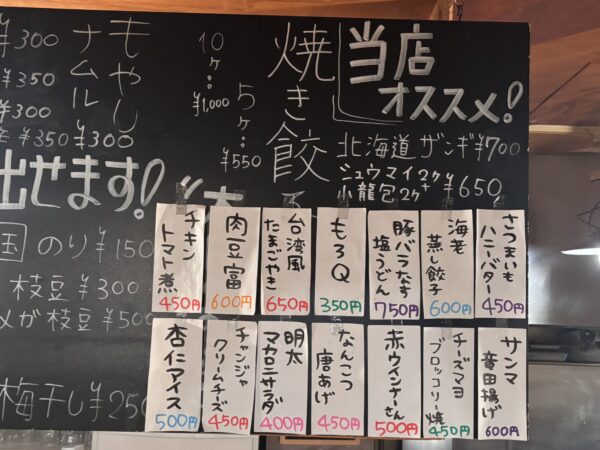 当店
オススメ!
北海道ザンギ¥700
シュウマイ2ケ+
小龍包2ケ
¥650
焼き餃子
5ケ…¥550
10ケ…¥1,000
もやし
ナムル
¥300
¥300
¥350
¥300
¥350
出せます!
国 のり¥150
枝豆¥300
メガ枝豆¥500
梅干し¥250
さつまいも
ハニーバター
450円
海老
蒸し餃子
600円
豚バラなす
塩うどん
750円
もろQ
350円
台湾風
たまごやき
650円
肉豆富
600円
チキン
トマト煮
450円
サンマ
竜田揚げ
600円
チーズマヨ
ブロッコリー焼
450円
赤ウインナーさん
500円
なんこつ
唐あげ
450円
明太
マカロニサラダ
400円
チャンジャ
クリームチーズ
450円
杏仁アイス
500円